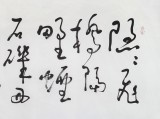 隱〻飛
橋隔
野煙
石磯西